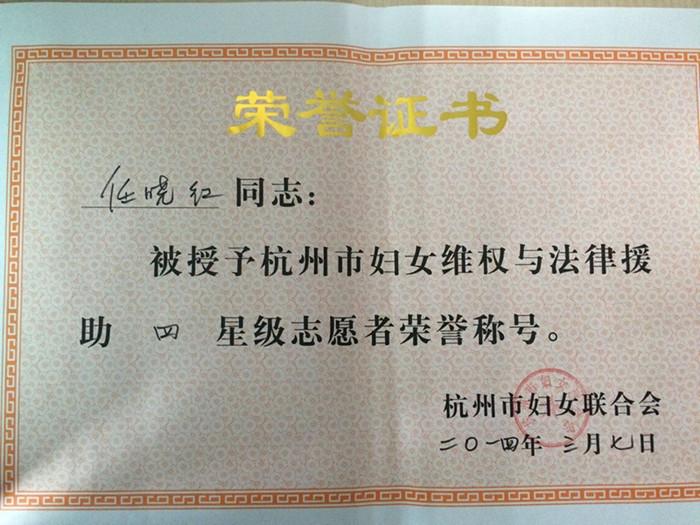 荣誉证书
任晓红同志：
被授予杭州市妇女维权与法律援
助 四 星级志愿者荣誉称号。
杭州市妇女联合会
二〇一四年三月七日